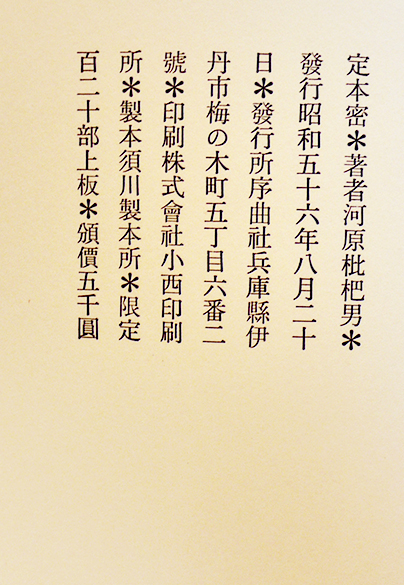 定本密＊著者河原枇杷男＊
發行昭和五十六年八月二十
日＊發行所序曲社兵庫縣伊
丹市梅の木町五丁目六番二
號＊印刷株式會社小西印刷
所＊製本須川製本所＊限定
百二十部上板＊頒價五千圓